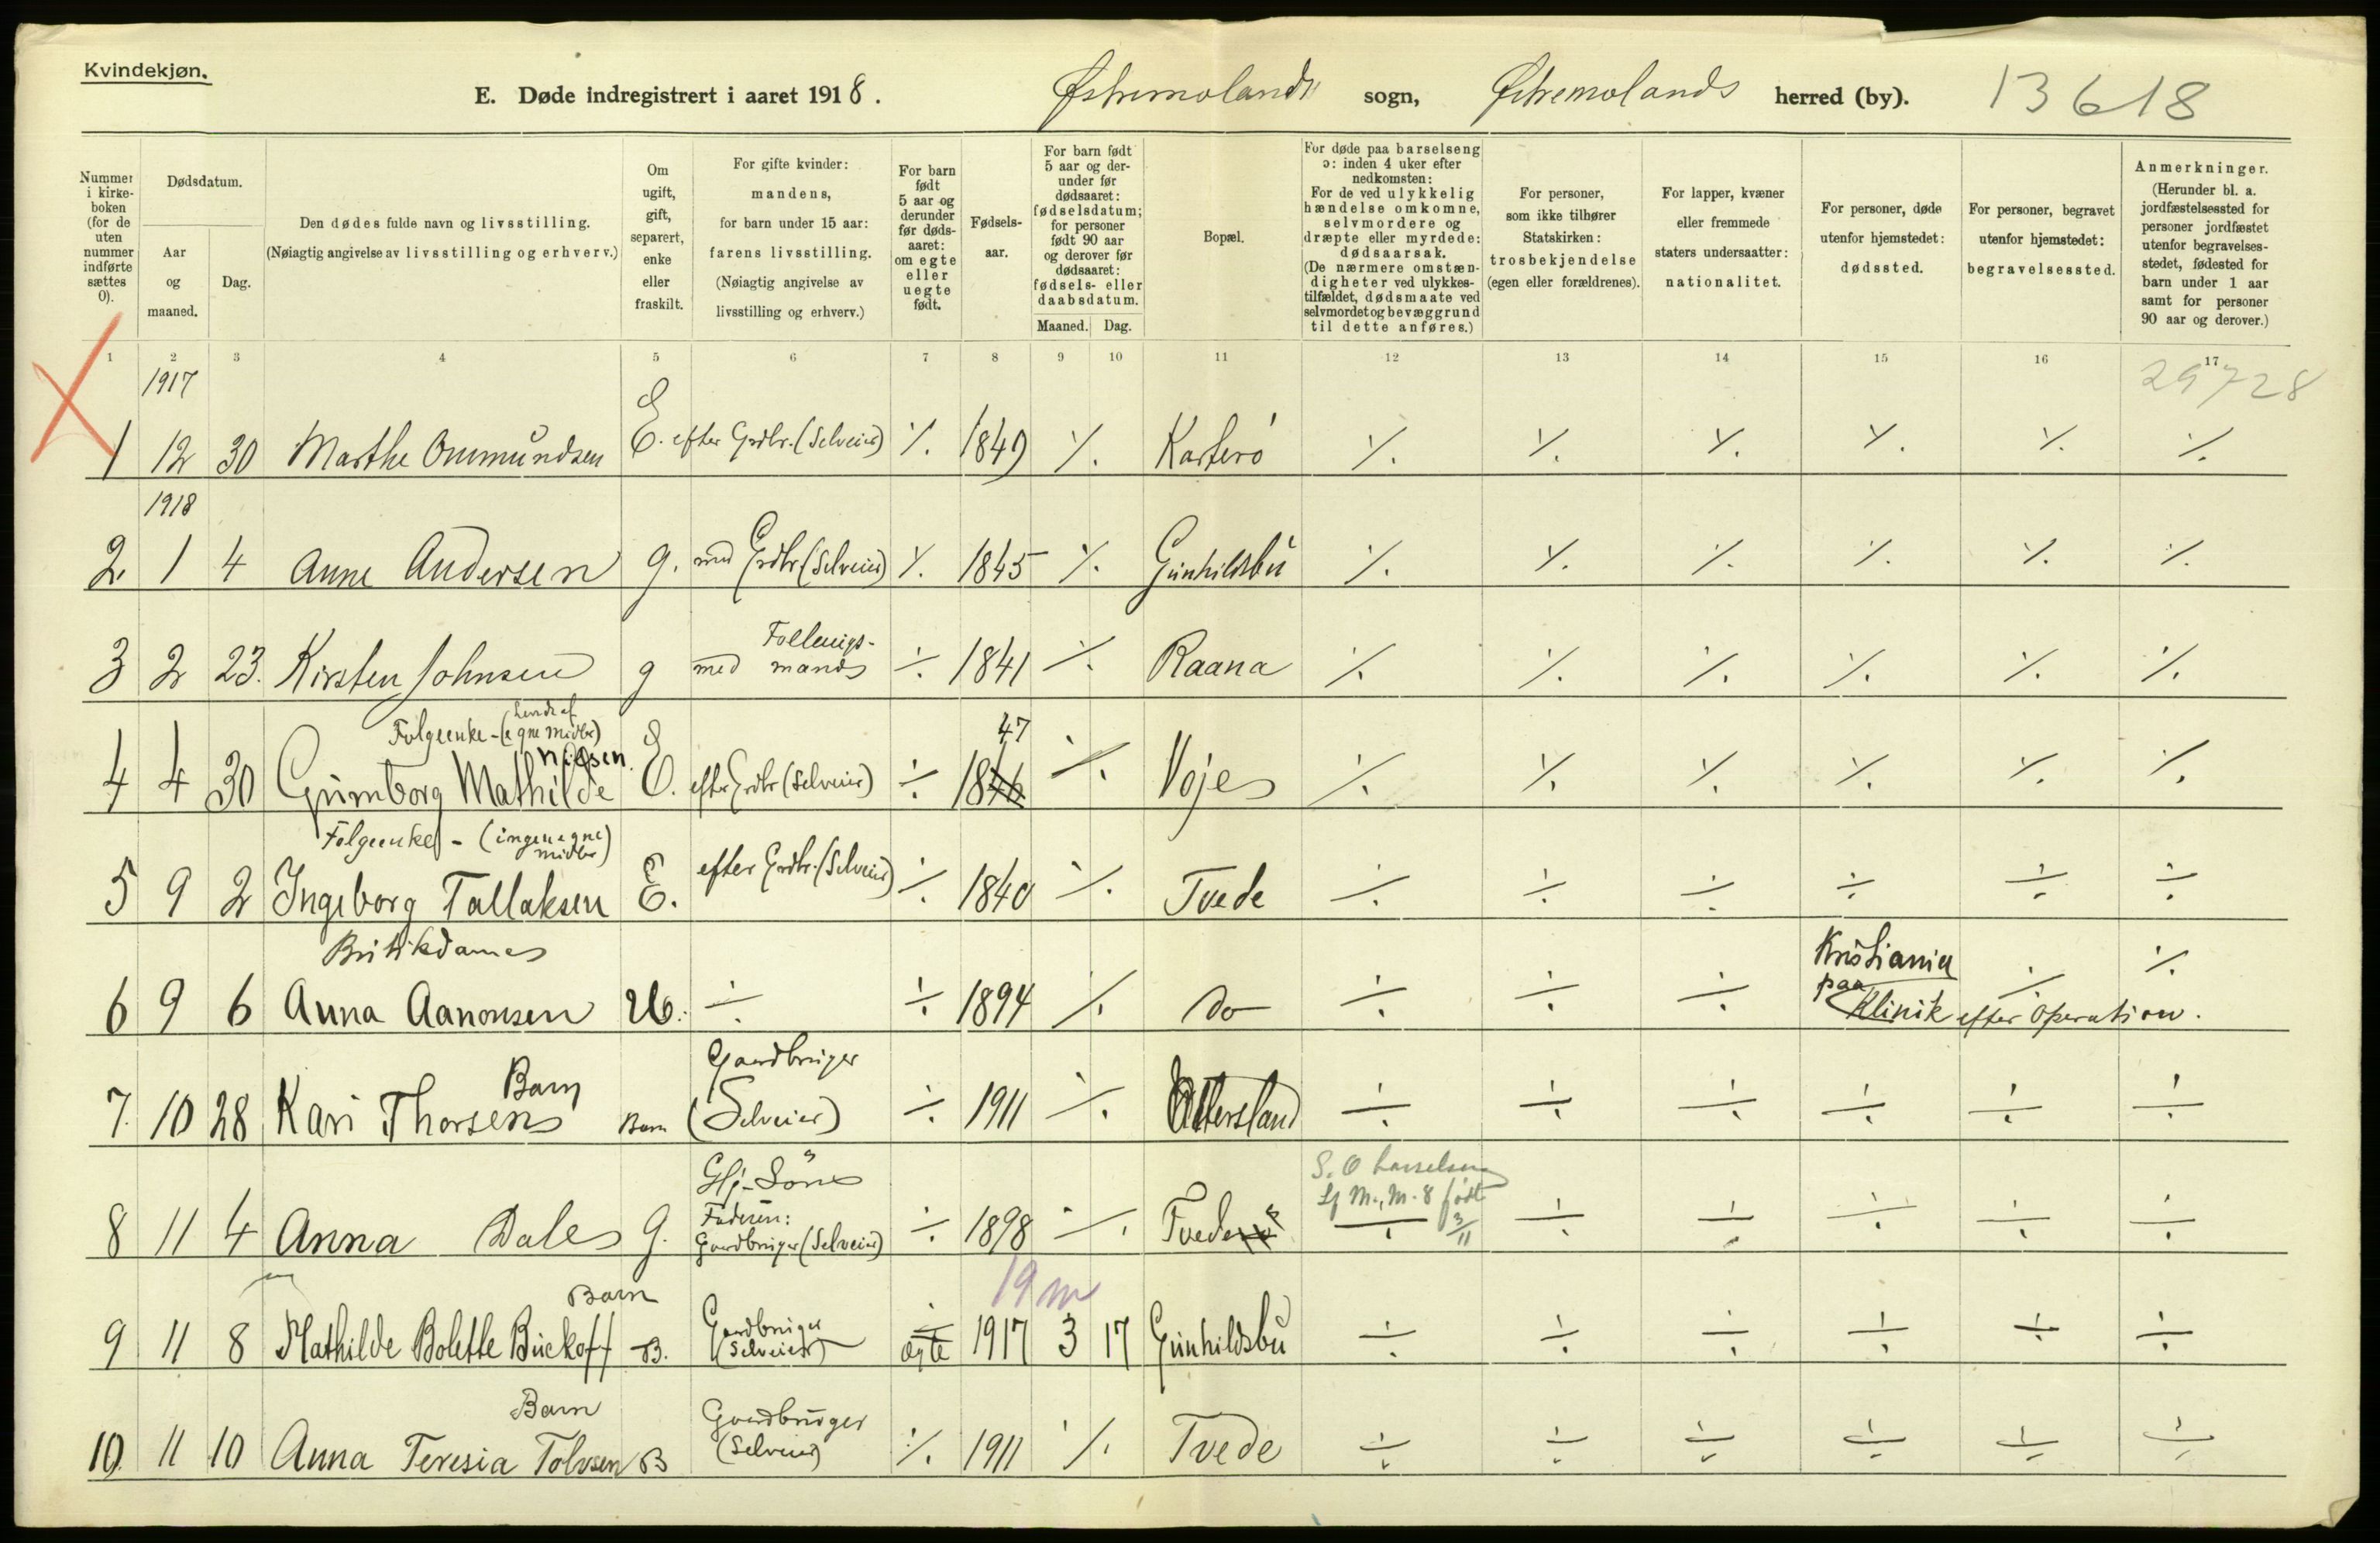 Kvindekjøn.
E. Døde indregistrert i aaret 1918. Østremolands sogn, Østremolands herred (by). 13618
Nummer i kirke-boken (for de uten nummer indførte sættes 0).
Dødsdatum.
Aar og maaned.
Dag.
Den dødes fulde navn og livsstilling.
(Nøiagtig angivelse av livsstilling og erhverv.)
Om ugift, gift, separert, enke eller fraskilt.
For gifte kvinder: mandens, for barn under 15 aar: farens livsstilling.
(Nøiagtig angivelse av livsstilling og erhverv.)
For barn født 5 aar og derunder før døds-aaret: om egte eller uegte født.
Fødsels-aar.
For barn født 5 aar og der-under før dødsaaret: fødselsdatum; for personer født 90 aar og derover før dødsaaret: fødsels- eller daabsdatum.
Maaned. Dag.
Bopæl.
For døde paa barselseng ɔ: inden 4 uker efter nedkomsten:
For de ved ulykkelig hændelse omkomne, selvmordere og dræpte eller myrdede: dødsaarsak.
(De nærmere omstæn-digheter ved ulykkes-tilfældet, dødsmaate ved selvmordet og bevæggrund til dette anføres.)
For personer, som ikke tilhører Statskirken: trosbekjendelse (egen eller forældrenes).
For lapper, kvæner eller fremmede staters undersaatter: nationalitet.
For personer, døde utenfor hjemstedet: dødssted.
For personer, begravet utenfor hjemstedet: begravelsessted.
Anmerkninger.
(Herunder bl. a. jordfæstelsessted for personer jordfæstet utenfor begravelses-stedet, fødested for barn under 1 aar samt for personer 90 aar og derover.)
1 2 3 4 5 6 7 8 9 10 11 12 13 14 15 16 17
1917 29728
1 12 30 Marthe Ommundsen E. efter Grdbr. (Selveier) ⁒ 1849 ⁒ Kasterø ⁒ ⁒ ⁒ ⁒ ⁒ ⁒
1918
2 1 4 Anne Andersen g. med Grdbr (Selveier) ⁒ 1845 ⁒ Gunhildsbu ⁒ ⁒ ⁒ ⁒ ⁒ ⁒
3 2 23. Kirsten Johnsen g med mands ÷ 1841 ⁒ Raana ⁒ ⁒ ⁒ ⁒ ⁒ ⁒
Folgeenke - (levde af egne midler) 47
4 4 30 Gunborg Mathilde Nilsen. E. efter Grdbr (Selveier) ÷ 1846 ⁒ Vøjes ⁒ ⁒ ⁒ ⁒ ⁒ ⁒
Folgeenke - (ingen egne midler)
5 9 2 Ingeborg Tallaksen E. efter Grdbr. (Selveier) ÷ 1840 ⁒ Tvede ÷ ÷ ÷ ÷ ÷ ÷
Butikdame
6 9 6 Anna Aanonsen U. ÷ ÷ 1894 ⁒ Do ÷ ÷ ÷ Kristiania paa Klinik efter operation. ⁒ ⁒
Barn Gaardbruger
7. 10 28 Kari Thorsen Barn (Selveier) ÷ 1911 ⁒ Ottersland ÷ ÷ ÷ ÷ ÷ ÷
S. O barselseng
Lj M., M. 8 født 3/11
8 11 4 Anna Dale G. Faderen: Gaardbruger (Selveier) ÷ 1898 ⁒ Tvede ÷ ÷ ÷ ÷ ÷ ÷
Barn 19 m
9 11 8 Mathilde Bolette Buckoff B. Gardbruger (Selveier) ægte 1917 3 17 Gunhildsbu ÷ ÷ ÷ ÷ ÷ ÷
Barn Gaardbruger
10. 11 10 Anna Teresia Tolvsen B (Selveier) ⁒ 1911 ⁒ Tvede ÷ ÷ ÷ ÷ ÷ ÷